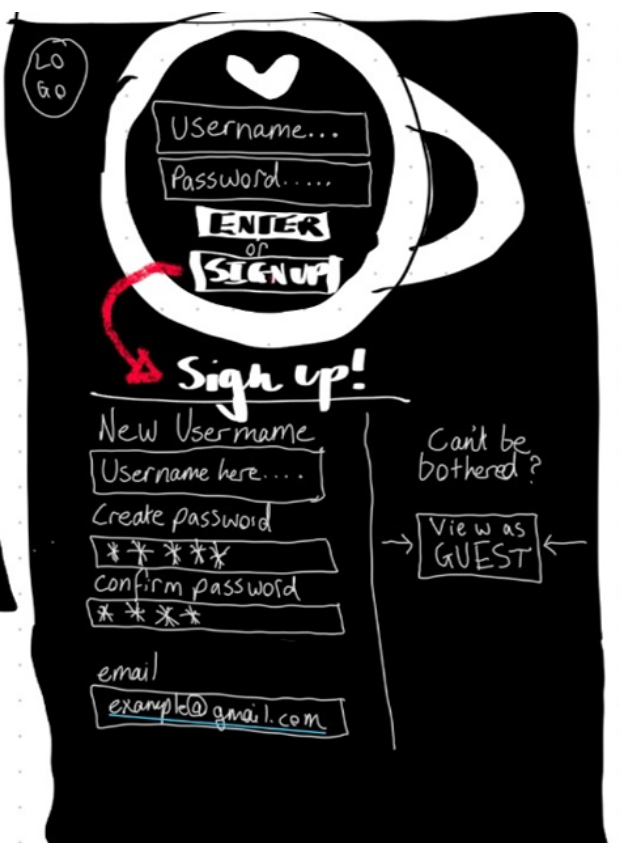 LO
GO
Username...
Password.....
ENTER
or
SIGNUP
Sign up!
New Username
Username here....
Create password
*****
confirm password
****
email
example@gmail.com
Can't be
bothered?
View as
GUEST